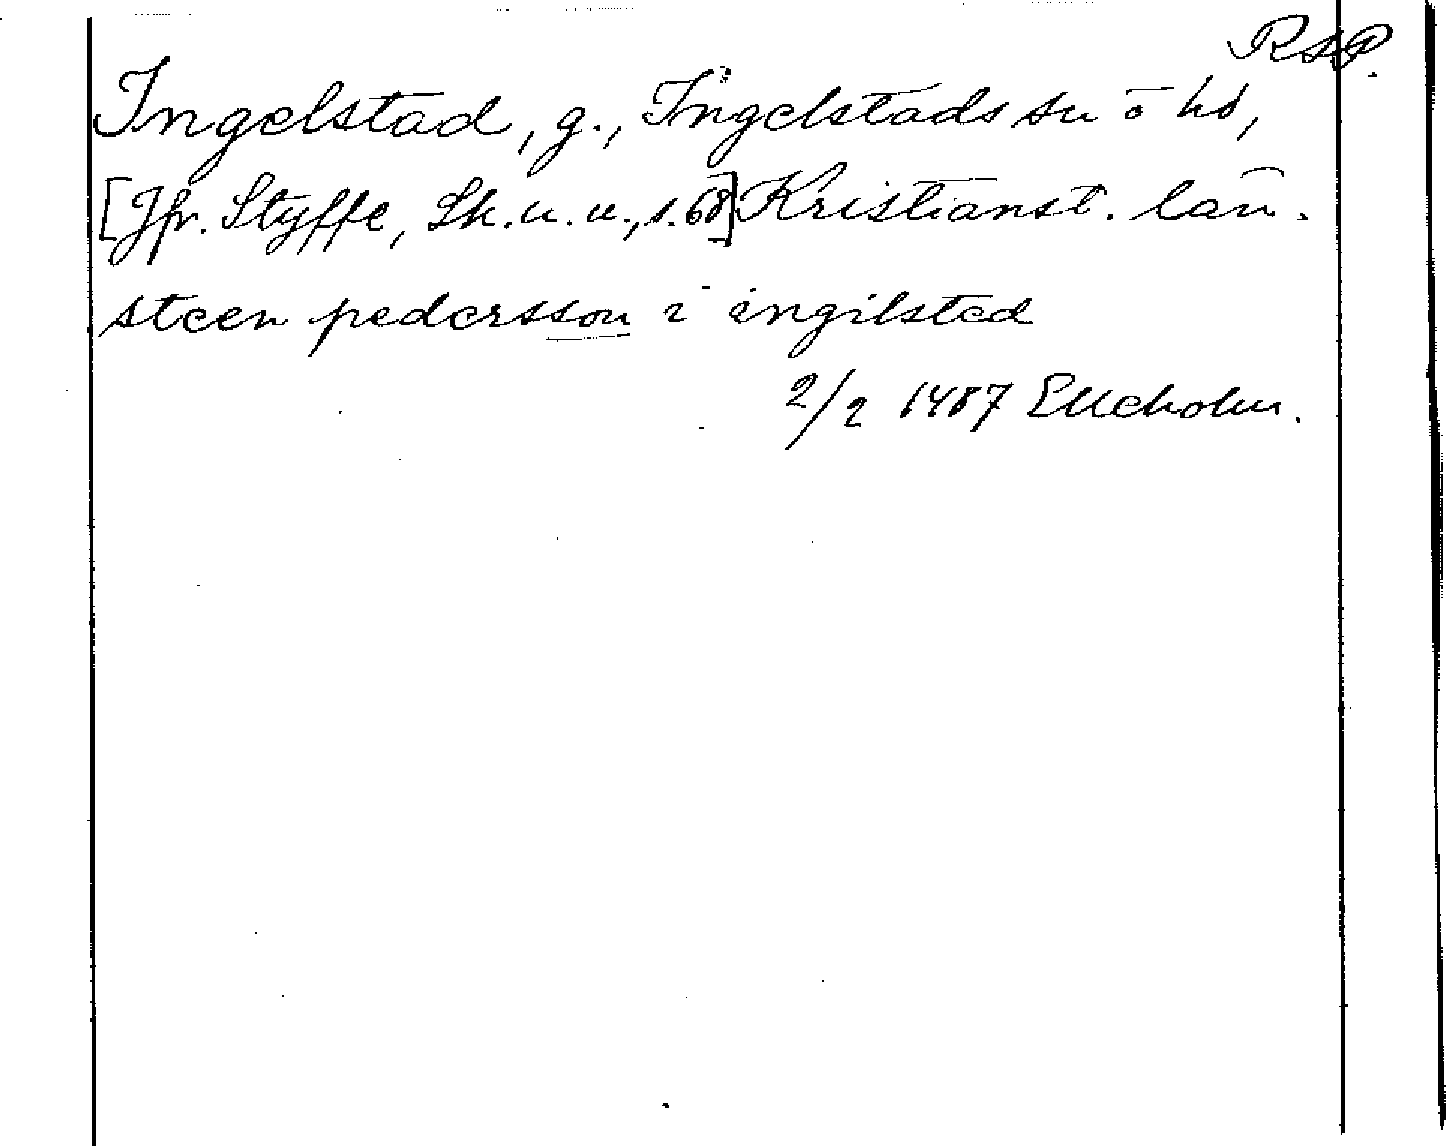 RAP.
Ingelstad, g., Ingelstads sn o hd,
[Jfr. Styffe, Sk. u. u., s. 68] Kristianst. län.
steen pedersson i ingilsted
2/2 1487 Elleholm.